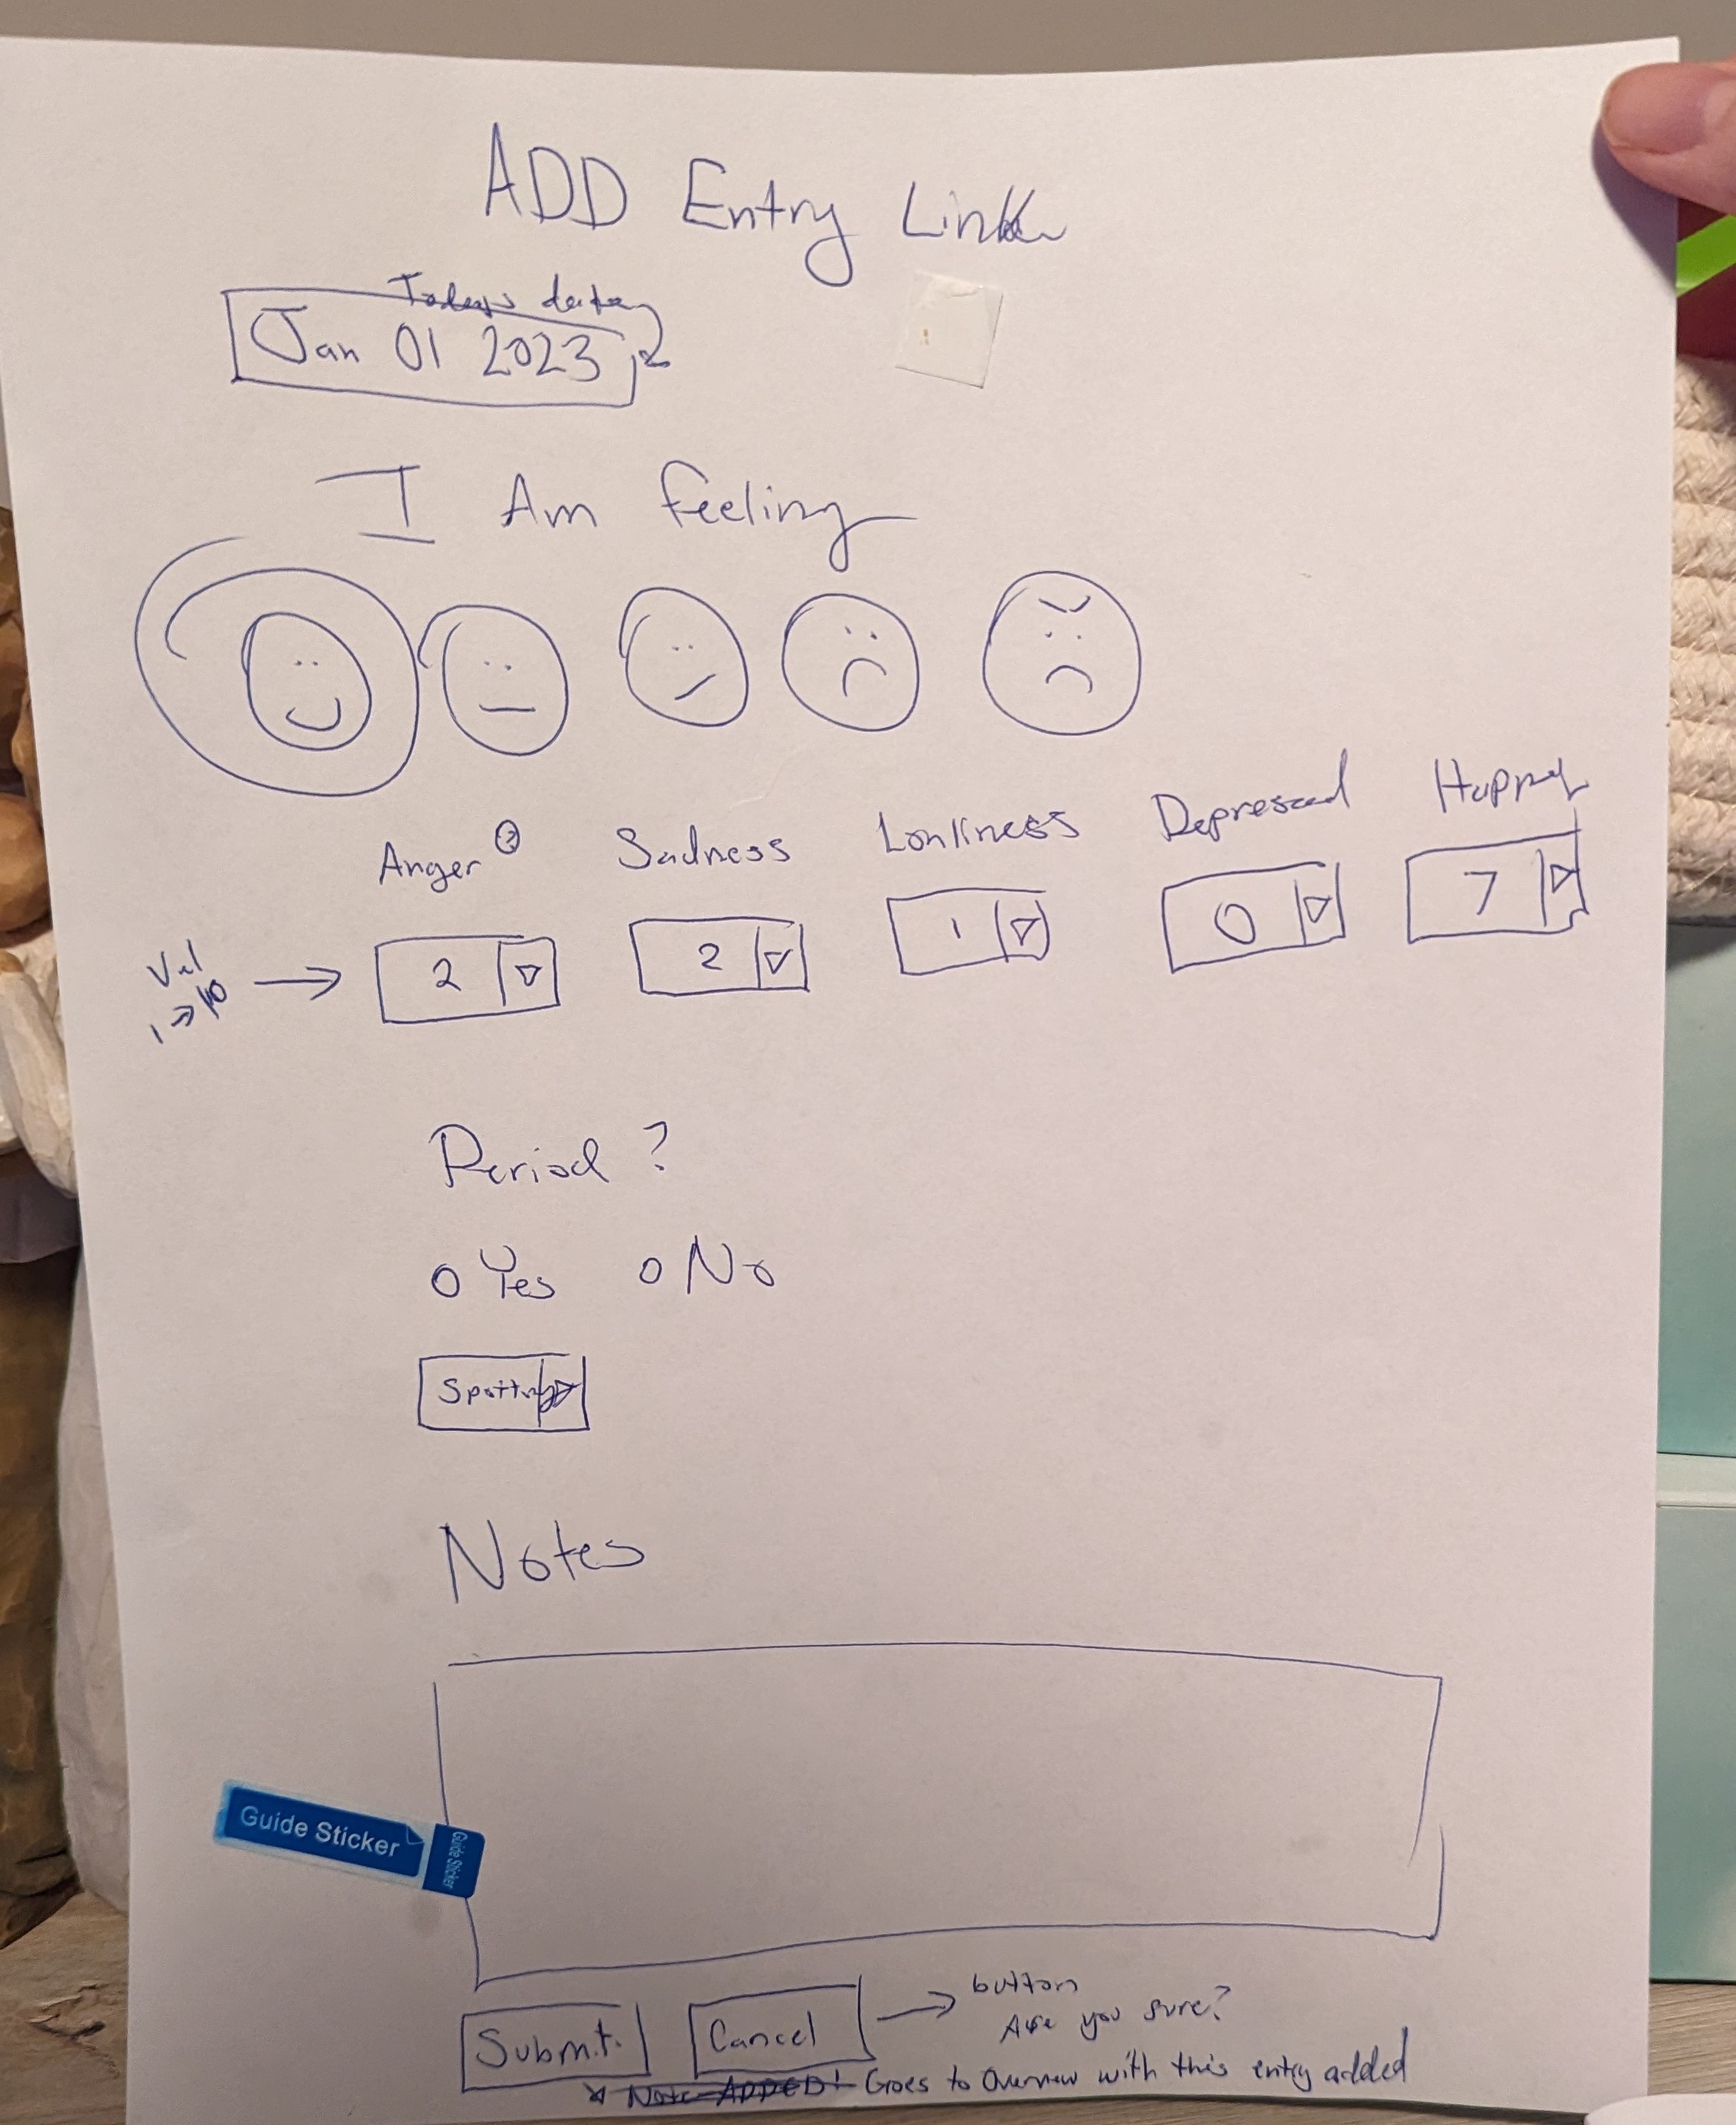 ADD Entry Link
Todays date
Jan 01 2023
I Am feeling
Anger ?
Sadness
Lonliness
Depressed
Happy
Val
1 → 10
2
2
1
0
7
Period ?
Yes No
Spotting
Notes
Guide Sticker
Guide Sticker
Submit
Cancel
button
Are you sure?
Note ADDED! Goes to Overview with this entry added